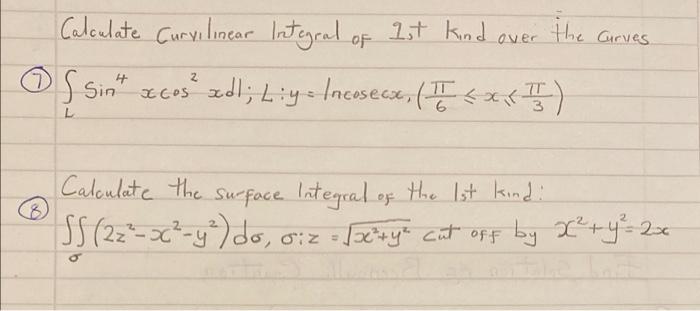 Calculate Curvilinear Integral of 1st Kind over the curves
⑦ ∫_L Sin⁴xcos²xdl; L:y=lncosecx, (π/6 ≤ x ≤ π/3)
Calculate the surface Integral of the 1st kind:
⑧ ∬_σ (2z²-x²-y²)dσ, σ:z=√x²+y² cut off by x²+y²=2x